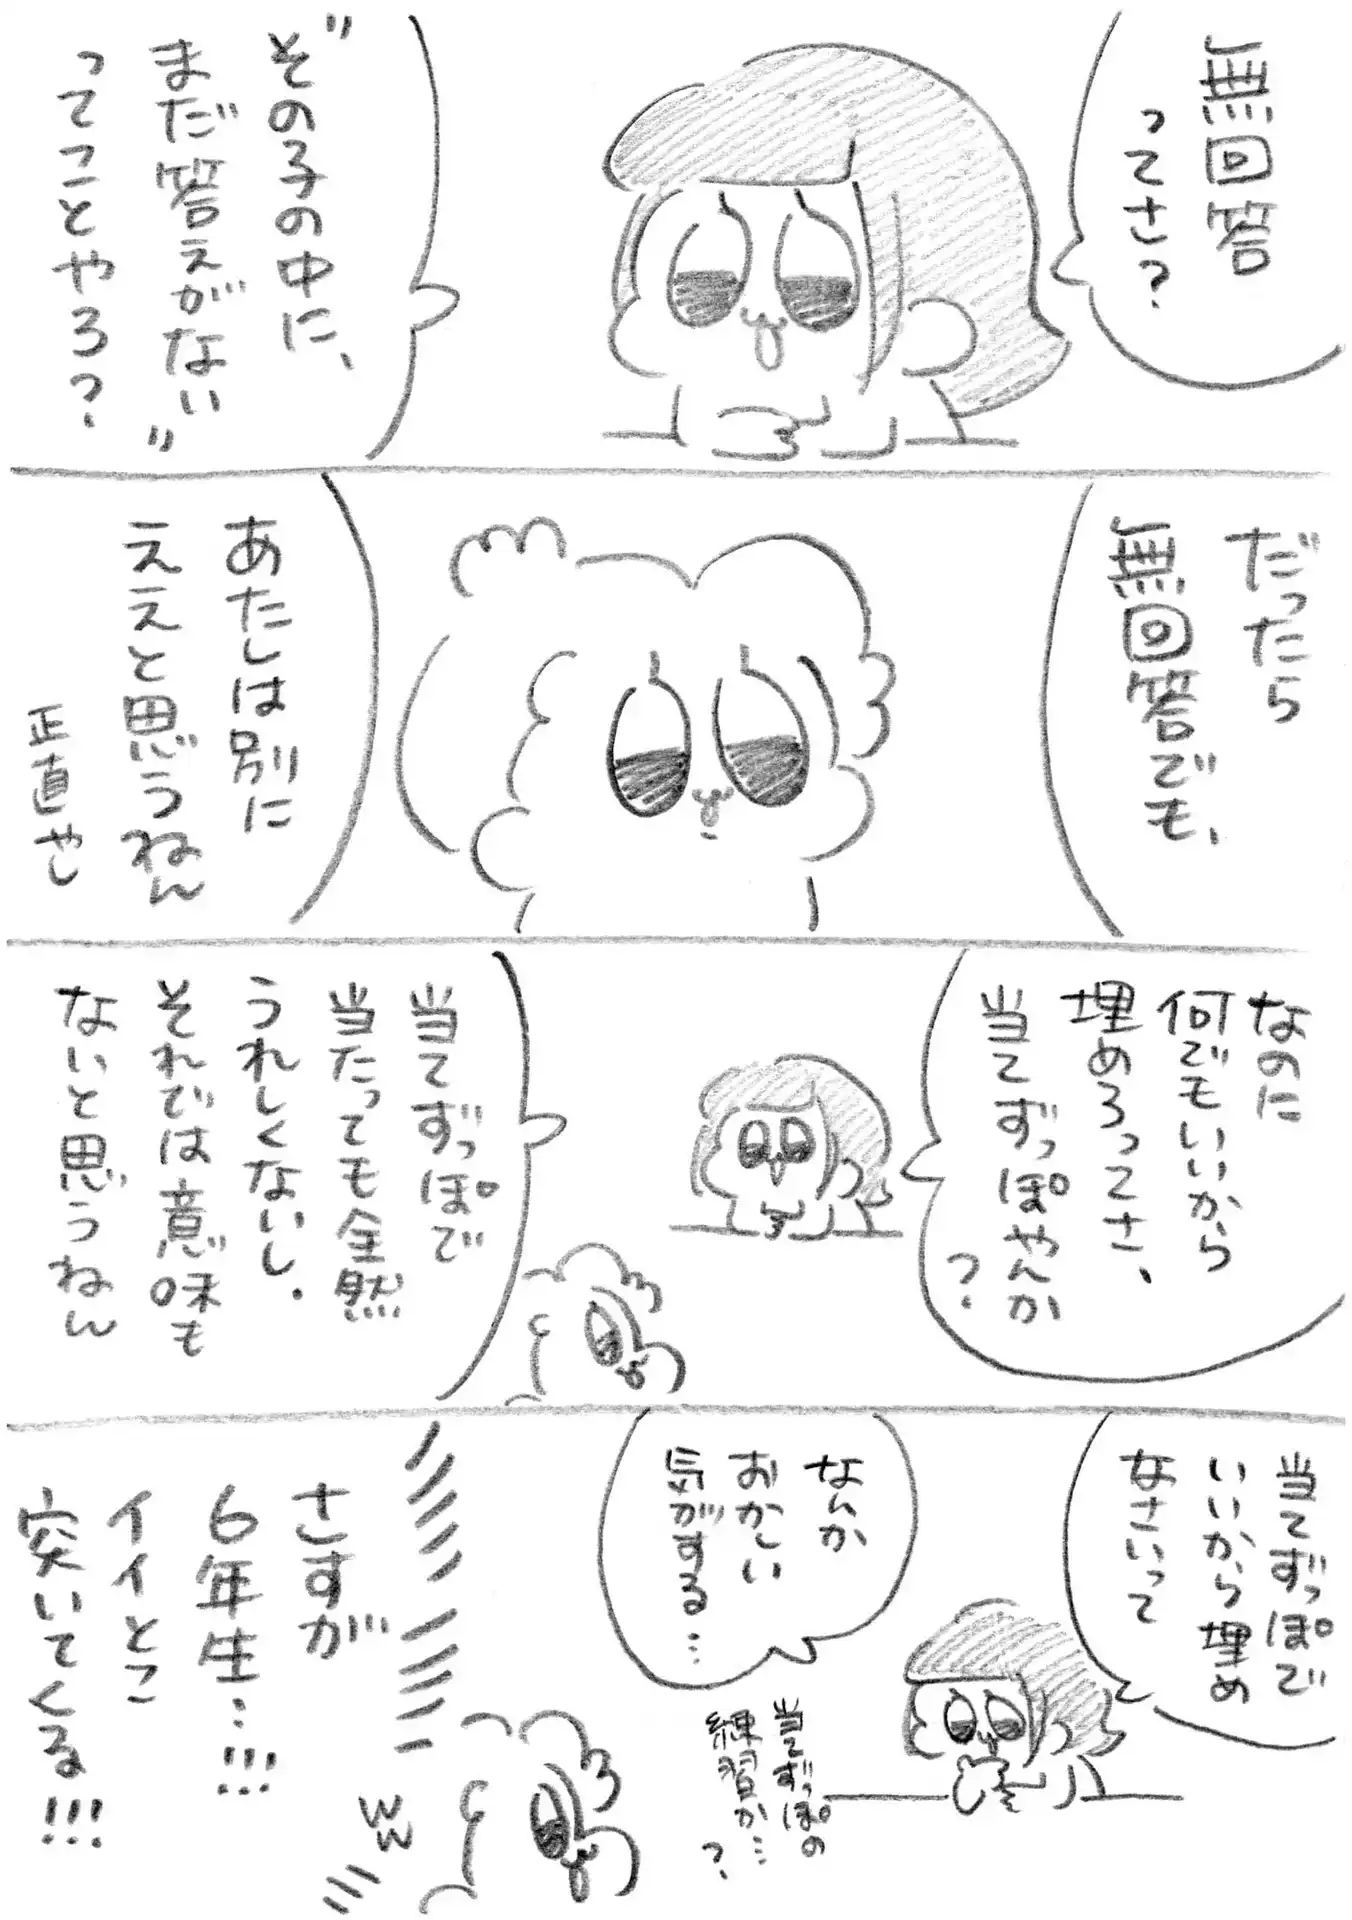 無回答
ってさ？
〝その子の中に、
まだ答えがない〟
ってことやろ？
だったら
無回答でも、
あたしは別に
ええと思うねん
正直やし
なのに
何でもいいから
埋めろってさ、
当てずっぽやんか
？
当てずっぽで
当たっても全然
うれしくないし、
それでは意味も
ないと思うねん
当てずっぽで
いいから埋め
なさいって
なんか
おかしい
気がする…
当てずっぽの
練習か…
？
さすが
6年生…!!!
イイとこ
突いてくる!!!